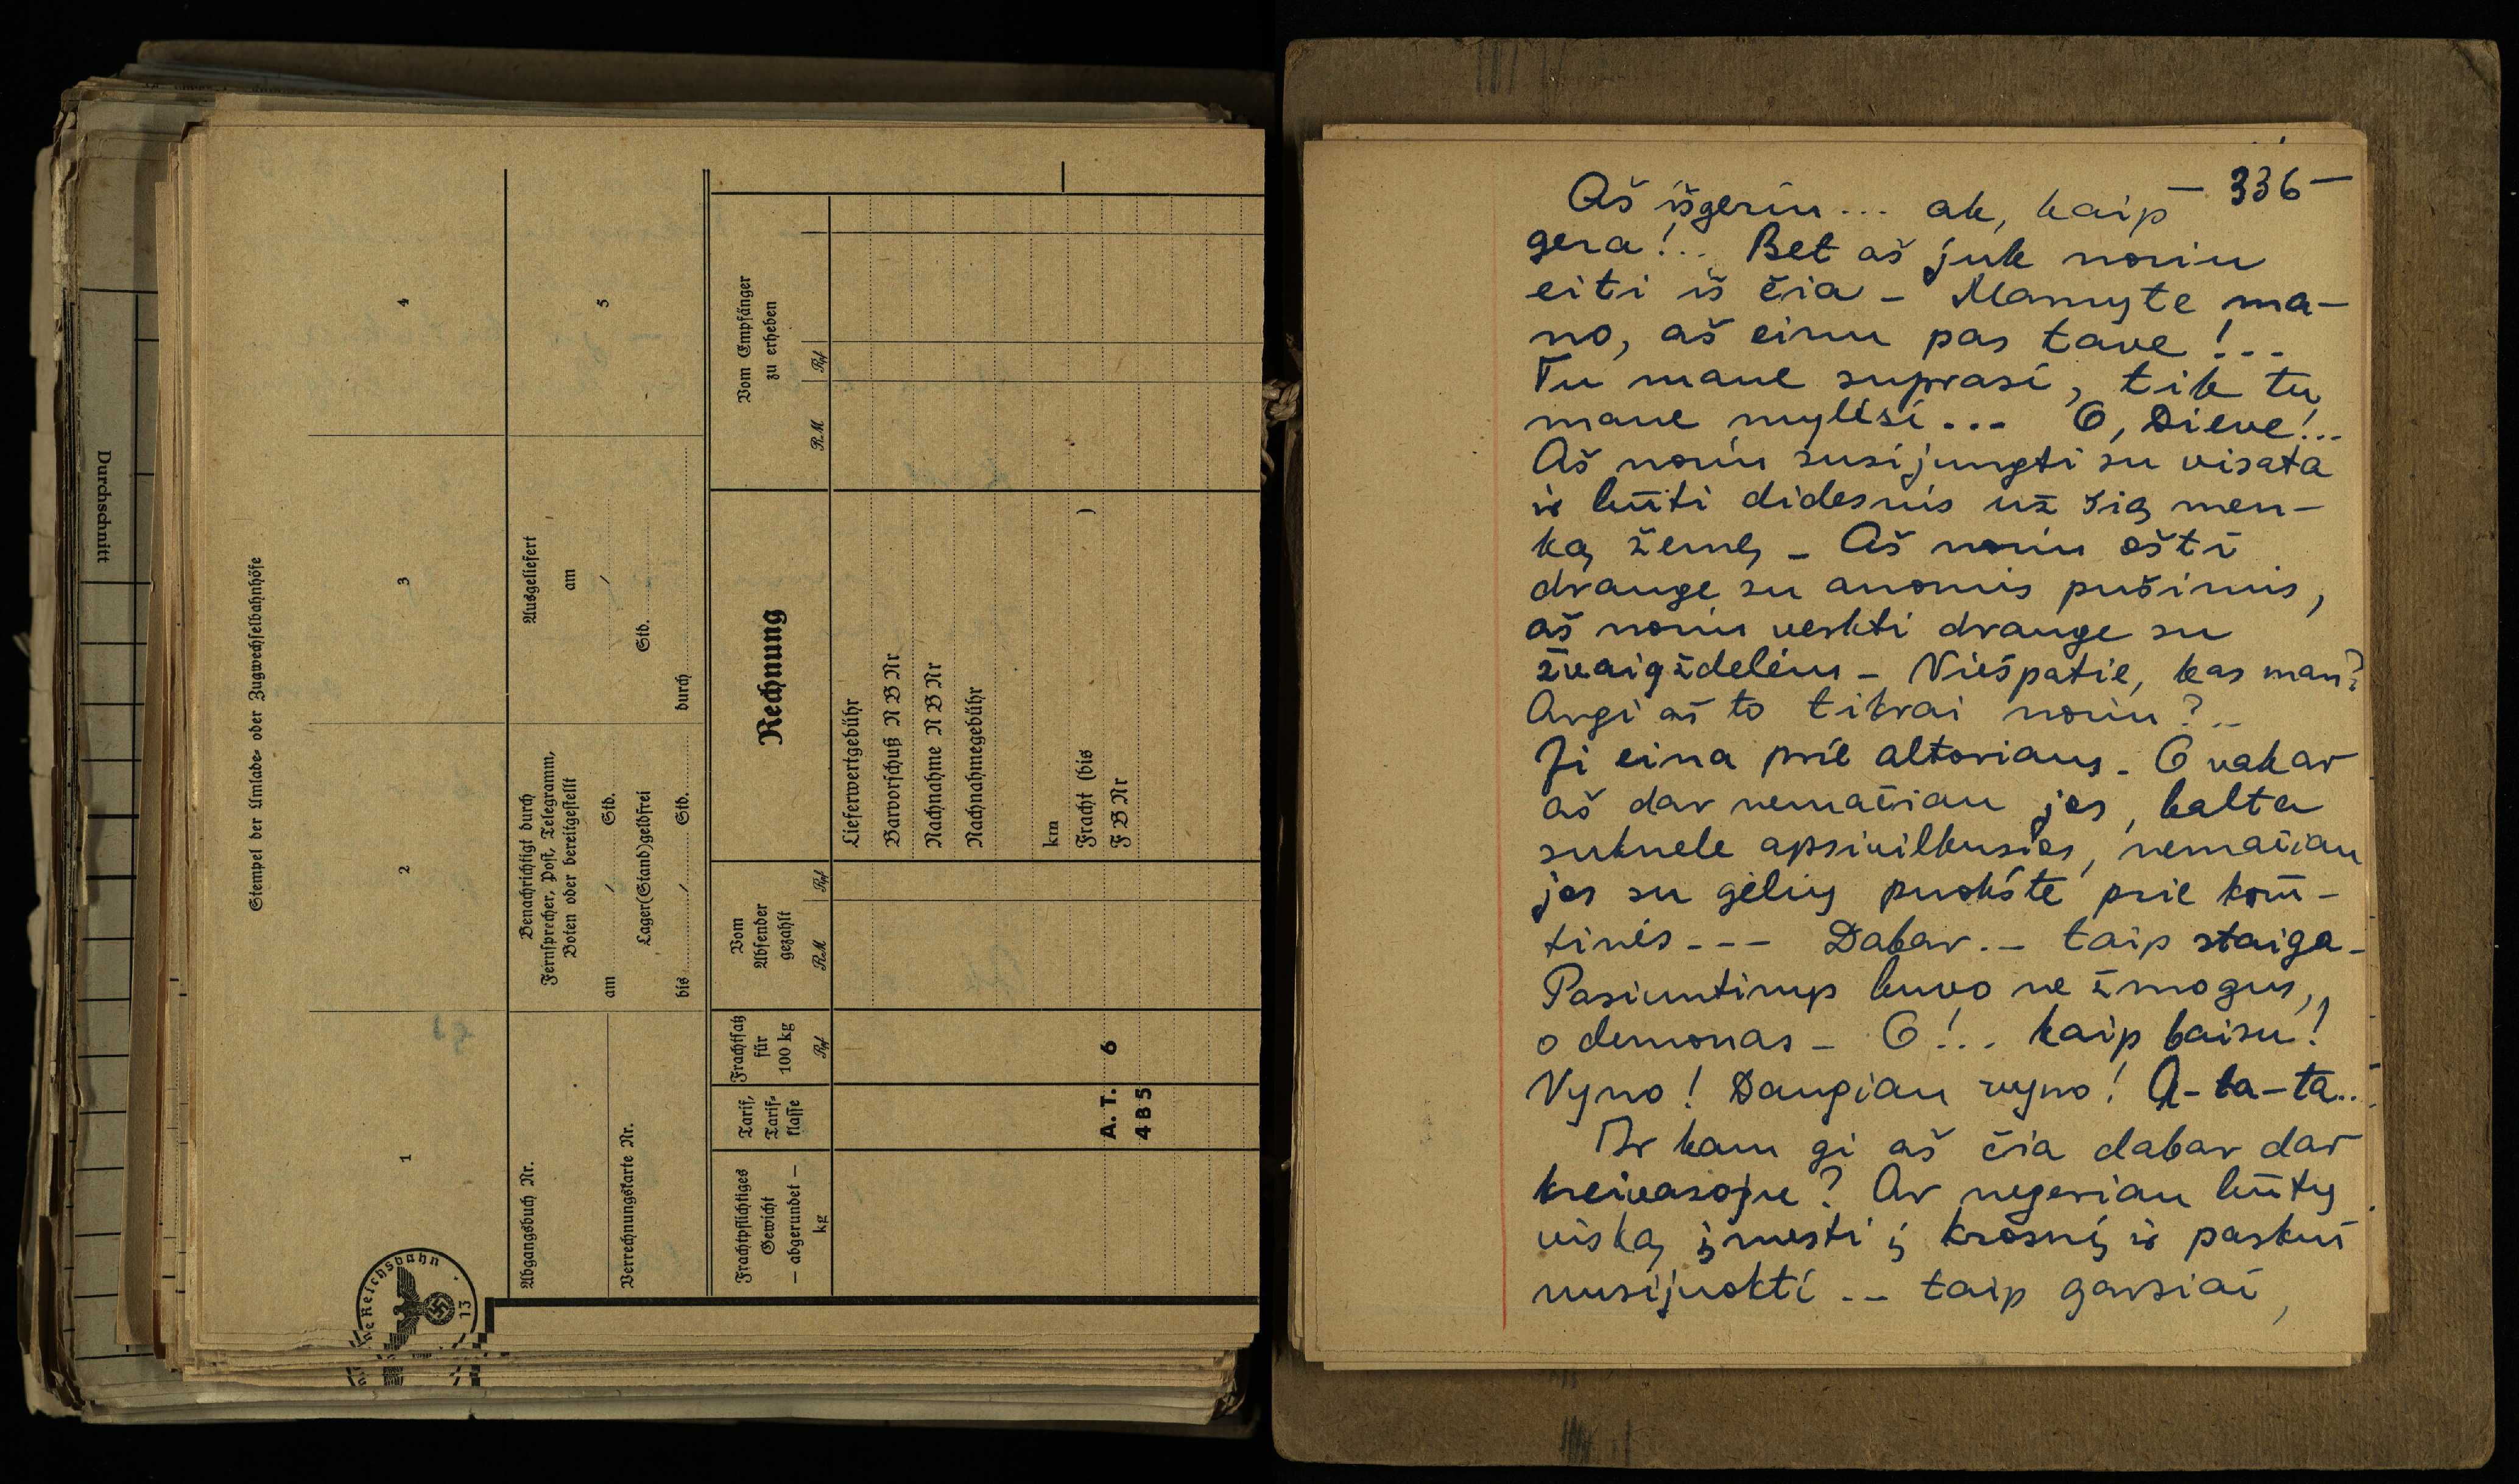 Durchschnitt
Stempel der Umlade- oder Zugwechselbahnhöfe
1
2
3
4
Abgangsbuch Nr.
Verrechnungskarte Nr.
Benachrichtigt durch
Fernsprecher, Post, Telegramm,
Boten oder bereitgestellt
am / Std.
Lager(Stand)geldfrei
bis / Std.
Ausgeliefert
am
/
Std.
durch
5
Frachtpflichtiges
Gewicht
— abgerundet —
kg
Tarif,
Tarif-
klasse
Frachtsatz
für
100 kg
Rpf
Vom
Absender
gezahlt
RM Rpf
Rechnung
Vom Empfänger
zu erheben
RM Rpf
Lieferwertgebühr
Barvorschuß N B Nr
Nachnahme N B Nr
Nachnahmegebühr
km
Fracht (bis )
F B Nr
A. T. 6
4 B 5
ne Reichsbahn
13
— 336 —
Aš išgeriu... ak, kaip
gera!.. Bet aš juk noriu
eiti iš čia – Mamyte ma-
no, aš einu pas tave!...
Tu mane suprasi, tik tu
mane mylėsi... O, Dieve!..
Aš noriu susijungti su visata
ir būti didesnis už šią men-
ką žemę – Aš noriu ošti
drauge su anomis pušimis,
aš noriu verkti drauge su
žvaigždelėm – Viešpatie, kas man?
Argi aš to tikrai noriu?..
Ji eina prie altoriaus. O vakar
aš dar nemačiau jos, balta
suknele apsivilkusios, nemačiau
jos su gėlių puokšte prie krūm-
tinės --- Dabar.– taip staiga –
Pasiuntinys buvo ne žmogus,
o demonas – O!.. kaip baisu!
Vyno! Daugiau vyno! A-ta-ta..
Ir kam gi aš čia dabar dar
kreivasoju? Ar negeriau būtų
viską įmesti į krosnį ir paskui
nusijuokti -- taip garsiai,